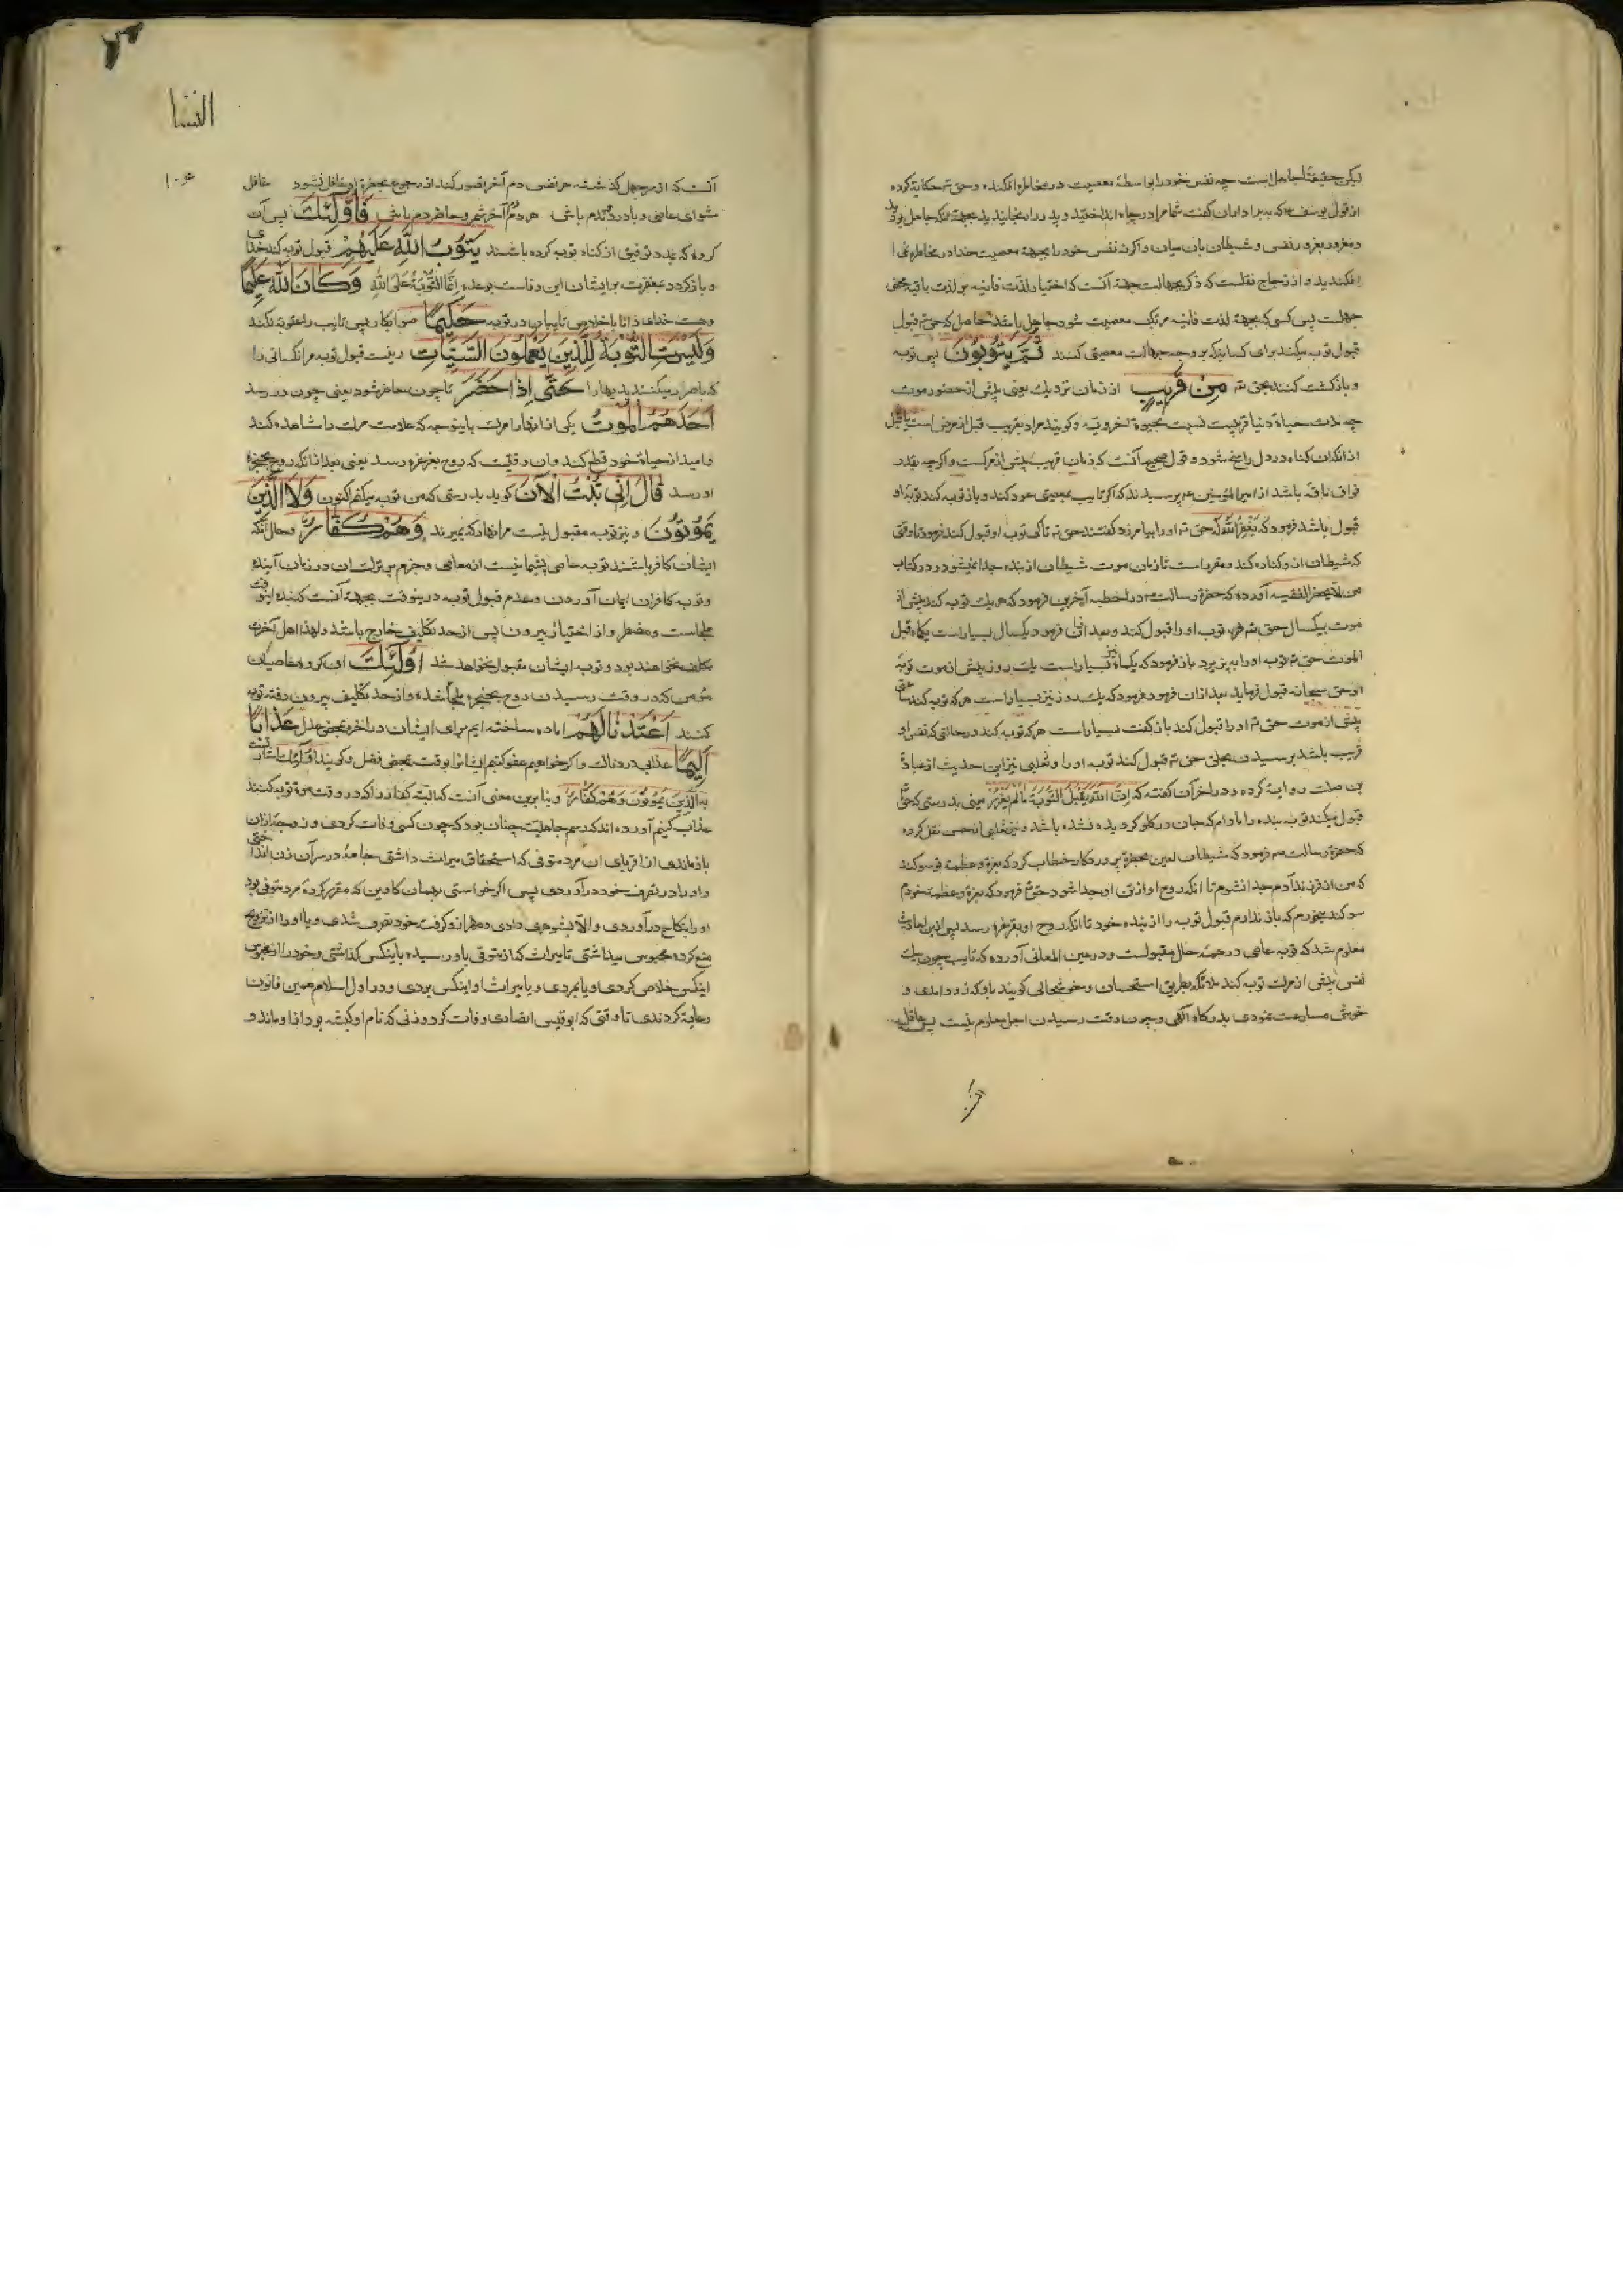 لیکن حقیقتا جاهل است چه نفس خود را بواسطهٔ معصیت در مخاطره افکنده و حق تم حکایة کرده
از قول یوسف که ببرادران گفت شما مرا در چاه انداختید و پدر را رنجانیدید بجهة آنکه جاهل بودید
و مغرور بغرور نفس و شیطان باز میان واکره نفس خود را بجهة معصیت خدا در مخاطره می
افکندید و از زجاج نقلست که ذکر بجهالت جهة آنست که اختیار لذت فانیه بر لذت باقیه محض
جهلست پس کسی که بجهة لذت فانیه مرتکب معصیت شود جاهل باشد حاصل که حق تم قبول
قبول توبه میکند برای کسانیکه بر وجه جهالت معصیتی کنند ثُمَّ يَتُوبُونَ پس توبه
و بازگشت کنند بحق تم مِنْ قَرِيبٍ از زمان نزدیک یعنی پیش از حضور موت
چه مدت حیاة دنیا قریبست نسبت بحیوة اخرویه و گویند مراد بقریب قبل از مرض است یا قبل
از آنکه آن گناه در دل راسخ شود و قول صحیح آنست که زمان قریب پیش از مرکست و اگر چه بقدر
فواق ناقه باشد از امیر المؤمنین عم پرسیدند که اگر تایب بمعصیتی عود کند و باز توبه کند توبهٔ او
قبول باشد فرمود که یَغْفِرُ اللّٰهُ که حق تم او را بیامرزد گفتند حق تم تا کی توبه او قبول کند فرمود تا وقتی
که شیطان از و کناره کند و مقرر است تا زمان موت شیطان از بنده جدا نمیشود و در کتاب
من لا یحضر الفقیه آورده که حضرة رسالت در اخطبه آخرین فرمود که هر یک توبه کند پیش از
موت بیکسال حق تم توبه او را قبول کند و بعد از آن فرمود یکسال بسیار است یکماه قبل
الموت حق تم توبه او را بپزیرد باز فرمود که یکماه نیز بسیار است یک روز پیش از موت توبه
او حق سبحانه قبول فرماید بعد از آن فرمود که یک روز نیز بسیار است هر که توبه کند ساعتی
پیش از موت حق تم او را قبول کند باز گفت بسیار است هر که توبه کند در حالتی که نفس او
قریب باشد برسیدن بحلق حق تم قبول کند توبه او را و ثعلبی نیز این حدیث از عبادة
بن صامت روایة کرده و در آخر آن گفته که اِنَّ اللّٰهَ یَقْبَلُ التَّوبَةَ مَا لَمْ یُغَرْغِرْ یعنی بدرستی که حق تم
قبول میکند توبه بنده را مادام که جان در گلو گردیده نشده باشد و نیز ثعلبی از حسن نقل کرده
که حضرة رسالت صم فرمود که شیطان لعین بحضرة پروردگار خطاب کرد که بعزة و عظمة تو سوگند
که من از فرزند آدم جدا نشوم تا آنکه روح او از تن او جدا شود حق تم فرمود که بعزة و عظمت خودم
سوگند میخورم که باز ندارم قبول توبه را از بنده خود تا آنکه روح او بغرغره رسد پس ازین احادیث
معلوم شد که توبه عاصی در همهٔ حال مقبولست و در عین المعانی آورده که تایب چون یک
نفس پیش از مرگ توبه کند ملائکه بطریق استحسان و خوشحالی گویند باو که زود آمدی و
خوش مسارعت نمودی بدرگاه الهی و چون وقت رسیدن اجل معلوم نیست پس عاقل
النسا
آنست که از سر جهل گذشته هر نفسی دم آخر تصور کند از رجوع بحضرة او غافل نشود غافل
مشو ای عاصی و با درد و ندم باش هر دم دم آخر شمر و حاضر دم باش فَاُولٰئِكَ پس آن
گروه که بمدد توفیق از گناه توبه کرده باشند يَتُوبُ اللّٰهُ عَلَيْهِمْ قبول توبه کند خدای
و بازگردد بمغفرت بر ایشان این وفاست بوعده اِنَّمَا التَّوْبَةُ عَلَى اللّٰهِ وَكَانَ اللّٰهُ عَلِيمًا
و هست خدای دانا باخلاص تایبان در توبه حَكِيمًا صوابکار پس تایب را عقوبه نکند
وَلَيْسَتِ التَّوْبَةُ لِلَّذِينَ يَعْمَلُونَ السَّيِّئَاتِ و نیست قبول توبه مر آنکسانی را
که باصرار میکنند بدیها را حَتّٰى اِذَا حَضَرَ تا چون حاضر شود یعنی چون در رسد
اَحَدَهُمُ الْمَوْتُ یکی از آنها را مرگ باینوجه که علامت مرگ را مشاهده کند
و امید از حیاة خود قطع کند و آن وقتیست که روح بغرغره رسد یعنی بعد از آنکه روح بحنجره
او رسد قَالَ اِنِّي تُبْتُ الْاٰنَ گوید بدرستی که من توبه میکنم اکنون وَلَا الَّذِينَ
يَمُوتُونَ و نیز توبه مقبول نیست مر آنها را که بمیرند وَهُمْ كُفَّارٌ و حال آنکه
ایشان کافر باشند توبه عاصی پشیمانیست از معاصی و جزم بر ترک آن در زمان آینده
و توبه کافران ایمان آوردن و عدم قبول توبه درینوقت بجهة آنست که بنده اینوقت
ملجاست و مضطر و از اختیار بیرون پس از حد تکلیف خارج باشد و لهذا اهل آخرة
مکلف نخواهند بود و توبه ایشان مقبول نخواهد شد اُولٰئِكَ آن گروه عاصیان
مؤمن که در وقت رسیدن روح بحنجره ملجأ شده و از حد تکلیف بیرون رفته توبه
کنند اَعْتَدْنَا لَهُمْ آماده ساخته ایم برای ایشان در آخرة بمحض عدل عَذَابًا
اَلِيمًا عذابی دردناک و اگر خواهیم عفو کنیم ایشانرا بوقت بمحض فضل و گویند اولئک اشارتست
به اَلَّذِینَ یَمُوتُونَ وَهُمْ کُفَّارٌ و بنا برین معنی آنست که البته کفار را که در وقت موة توبه کنند
عذاب کنیم آورده اند که رسم جاهلیت چنان بود که چون کسی وفات کردی و زوجه از آن
بازماندی از اقربای آن مرد متوفی که استحقاق میراث داشتی جامهٔ در سر آن زن انداختی
و او را در تصرف خود در آوردی پس اگر خواستی بهمان کابین که مقرر کردهٔ مرد متوفی بود
او را بنکاح در آوردی و الا بشوهری دادی و مهر او گرفت خود تصرف شدی و یا او را از تزویج
منع کرده محبوس میداشتی تا میراث که از متوفی باو رسیده باینکس گذاشتی و خود را از حبس
اینکس خلاص کردی و یا بمردی و یا میراث او اینکس بودی و در اول اسلام همین قانون
رعایة کردندی تا وقتی که ابو قیس انصاری وفات کرد و زنی که نام او کبشه بود از او ماند و